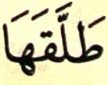 طَلَّقَهَا